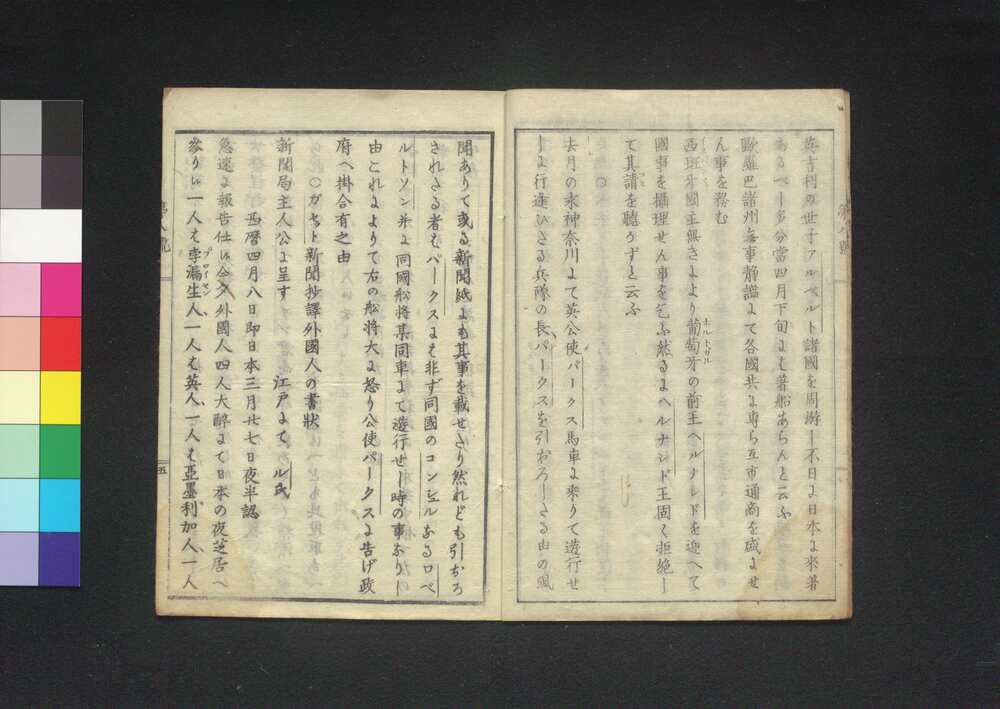 英吉利の世子アルベルト諸國を周游し不日に日本に來著
あるべし多分當四月下旬にも著船あらんと云ふ
歐羅巴諸州無事静謐にて各國共に専ら互市通商を盛にせ
ん事を務む
西班牙國主無きにより葡萄牙の前王ヘルナンドを迎へて
ホルトガル
國事を攝理せん事を乞ふ然るにヘルナンド王固く拒絶し
て其請を聴かずと云ふ
去月の末神奈川にて英公使パークス馬車に來りて遊行せ
しに行逢ひたる兵隊の長パークスを引おろしたる由の風
聞ありて或る新聞紙にも其事を載せたり然れども引おろ
されたる者はパークスには非ず同國のコンシュルなるロベ
ルトソン并に同國舩将某同車にて遊行せし時の事なりし
由これによりて右の舩将大に怒り公使パークスに告げ政
府へ掛合有之由
○ガゼット新聞抄譯外國人の書状
新聞局主人公に呈す 江戸にて、ル氏
西暦四月八日即日本三月廿七日夜半認
急速に報告仕候今夕外國人四人大醉にて日本の夜芝居へ
參り候一人は孛漏生人、一人は英人、一人は亞墨利加人、一人
プロイセン
第八號
五